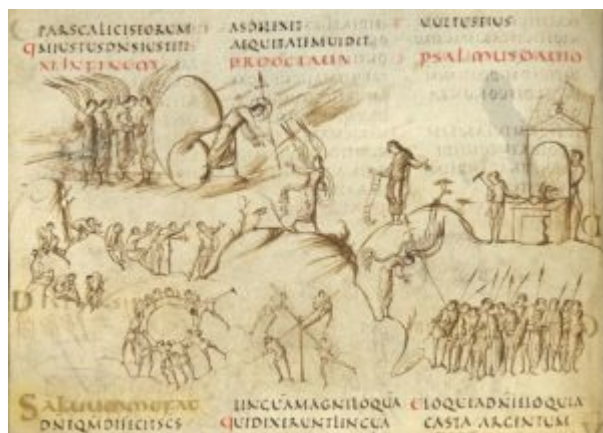 PARSCALICISEORUM
QMIUSTUSDNSIUSTITI
XI INFINEM
ASDILEXIT
AEQUITATEMUIDIT
PROOCTAUA
UULTUSEIUS
PSALMUSDAUID
SALUUMMEFAC
DNEQMDEFECITSCS
LINGUAMAGNILOQUA
QUIDIXERUNTLINGUA
ELOQUIADNIELOQUIA
CASTA ARGENTUM